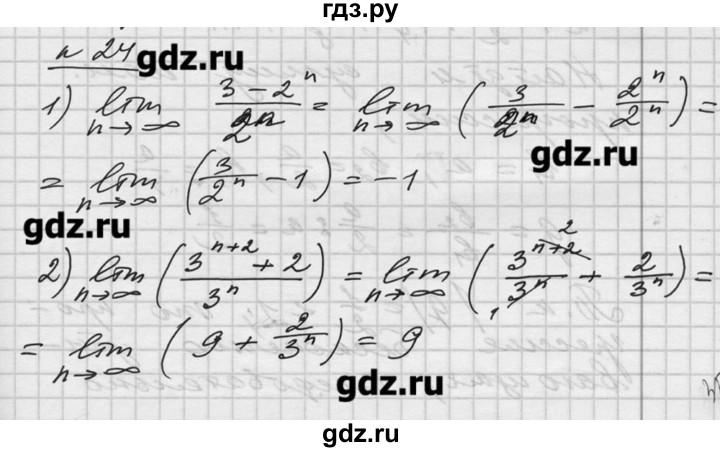 гдз.ру
n 24
gdz.ru
1) lim n→∞ (3 − 2^n)/2^n = lim n→∞ (3/2^n − 2^n/2^n) =
gdz.ru
= lim n→∞ (3/2^n − 1) = −1
gdz.ru
2) lim n→∞ ((3^(n+2) + 2)/3^n) = lim n→∞ (3^(n+2) 2/3^n 1 + 2/3^n) =
= lim n→∞ (9 + 2/3^n) = 9
gdz.ru
gdz.ru